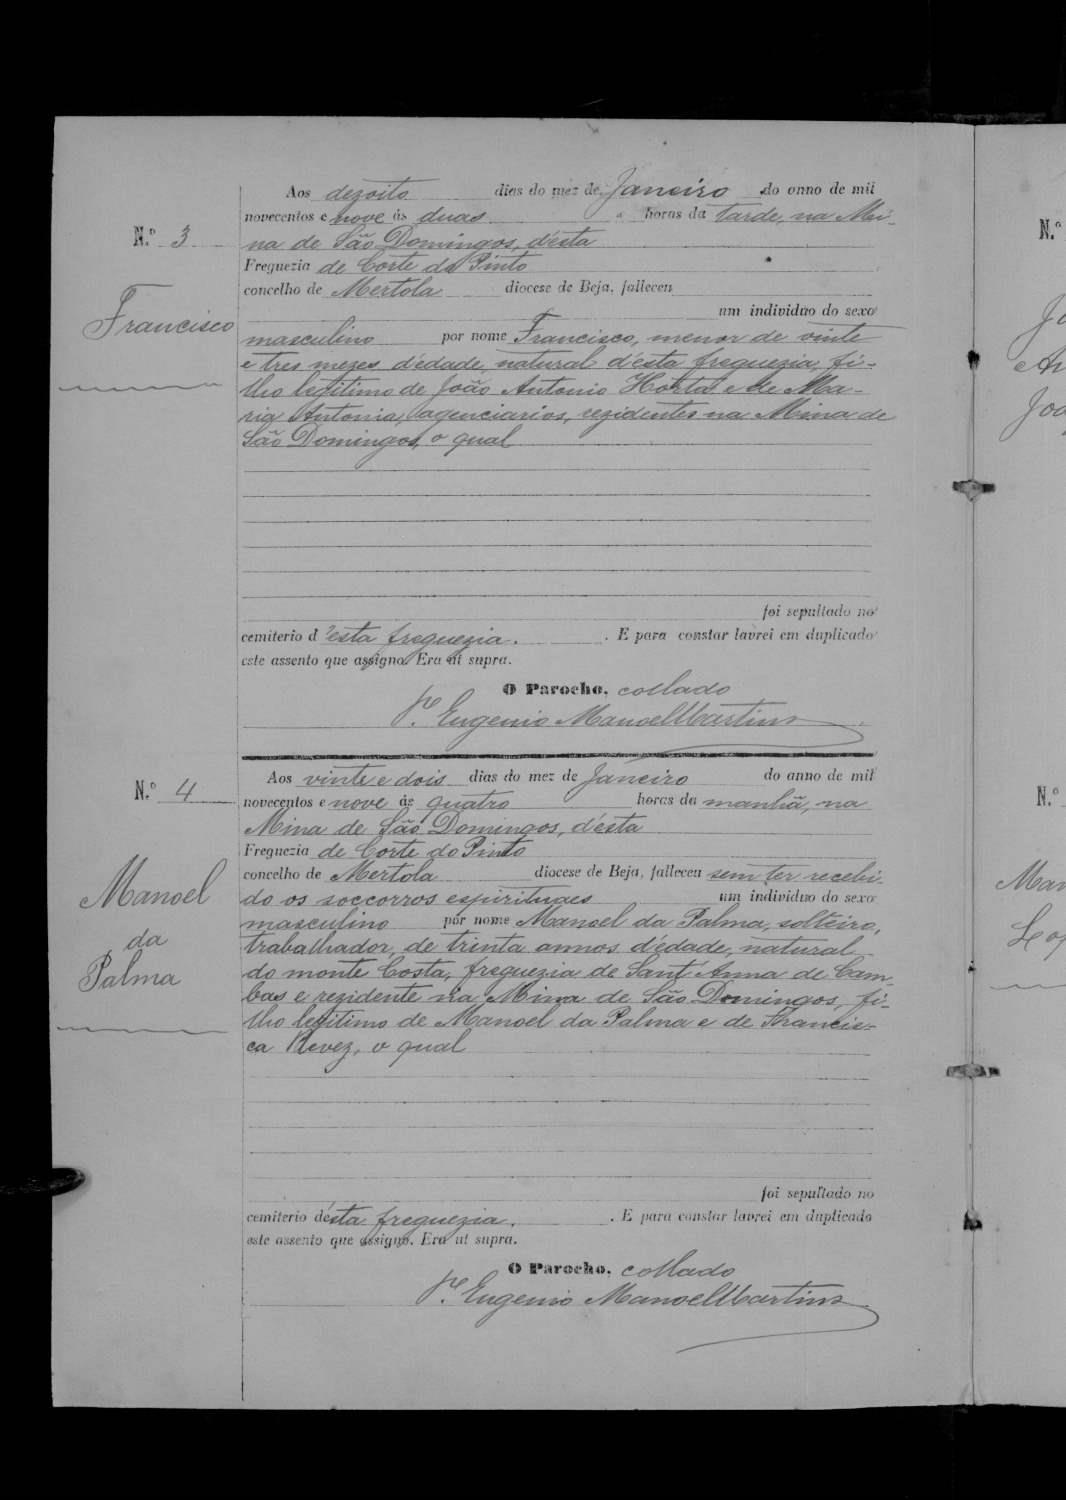 Aos dezoito dias do mez de Janeiro do anno de mil
novecentos e nove ás duas horas da tarde, na Mi-
N.º 3
na de São Domingos, d'esta
Freguezia de Corte do Pinto
concelho de Mertola diocese de Beja, falleceu
um individuo do sexo
Francisco
masculino por nome Francisco, menor de vinte
e tres mezes d'edade, natural d'esta freguezia, fi-
lho legitimo de João Antonio Horta e de Ma-
ria Antonia, agenciarios, rezidentes na Mina de
São Domingos, o qual
foi sepultado no
cemiterio d'esta freguezia. E para constar lavrei em duplicado
este assento que assigno. Era ut supra.
O Parocho, collado
P.e Eugenio Manoel Martins
Aos vinte e dois dias do mez de Janeiro do anno de mil
N.º 4
novecentos e nove ás quatro horas da manhã, na
Mina de São Domingos, d'esta
Freguezia de Corte do Pinto
concelho de Mertola diocese de Beja, falleceu sem ter recebi-
do os soccorros espirituaes um individuo do sexo
Manoel
da
Palma
masculino por nome Manoel da Palma, solteiro,
trabalhador, de trinta annos d'edade, natural
do monte Costa, freguezia de Sant'Anna de Cam-
bas e rezidente na Mina de São Domingos, fi-
lho legitimo de Manoel da Palma e de Francis-
ca Revez, o qual
foi sepultado no
cemiterio d'esta freguezia. E para constar lavrei em duplicado
este assento que assigno. Era ut supra.
O Parocho, collado
P.e Eugenio Manoel Martins
N.º
N.º